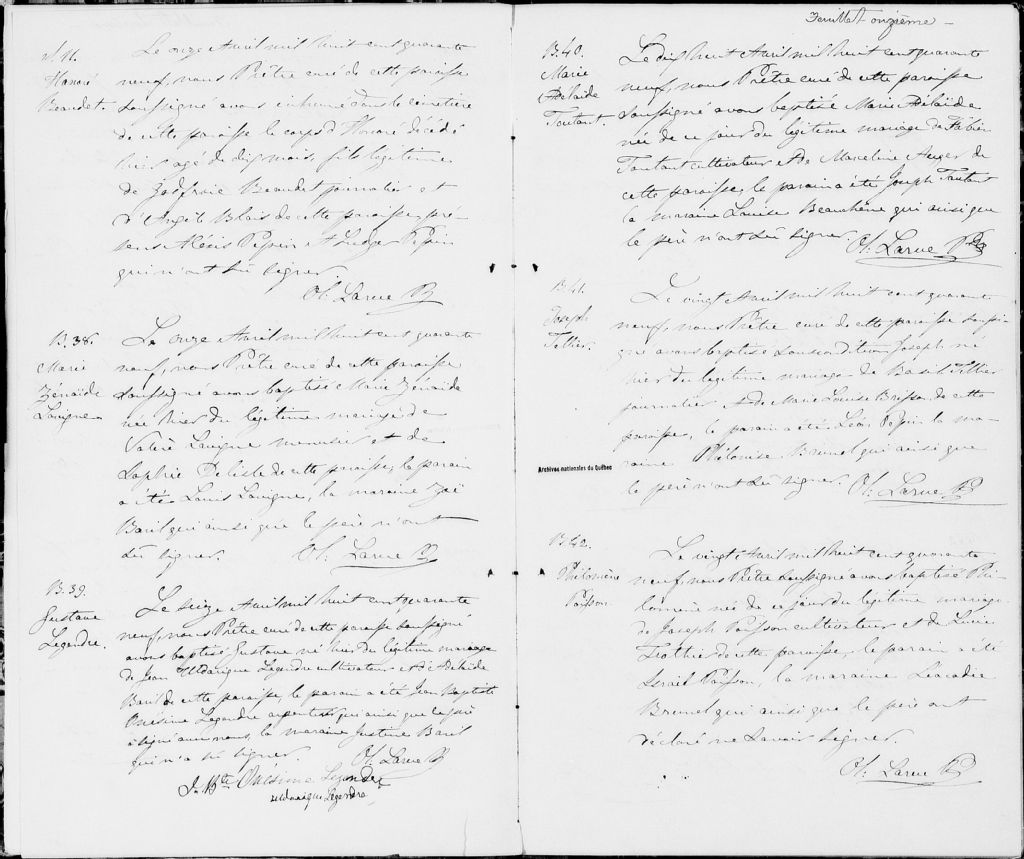 S. 11.
Honoré
Beaudet.
Le onze Avril mil huit cent quarante
neuf, nous Prêtre curé de cette paroisse
soussigné avons inhumé dans le cimetière
de cette paroisse le corps d'Honoré décédé
hier agé de dix mois, fils légitime
de Godfroie Beaudet journalier et
d'Angèle Blais de cette paroisse, pré-
sens Alexis Pepin et Ludger Pepin
qui n'ont su signer.
Ol. Larue Ptr
B. 38.
Marie
Zénaïde
Lavigne
Le onze Avril mil huit cent quarante
neuf, nous Prêtre curé de cette paroisse
soussigné avons baptisé Marie Zénaïde
née hier du légitime mariage de
Valère Lavigne menuisier et de
Sophie Delisle de cette paroisse, le parain
a été Louis Lavigne, la maraine Zoë
Baril qui ainsi que le père n'ont
su signer. Ol. Larue Ptr
B. 39.
Gustave
Legendre.
Le seize Avril mil huit cent quarante
neuf, nous Prêtre curé de cette paroisse soussigné
avons baptisé Gustave né hier du légitime mariage
de Jean Uldarique Legendre cultivateur et d'Adélaïde
Baril de cette paroisse, le parain a été Jean Baptiste
Onésime Legendre arpenteur qui ainsi que le père
a signé avec nous, la maraine Justine Baril
qui n'a su signer. Ol. Larue Ptr
Jn Bte Onésime Legendre
Uldarique Legendre
Feuillet onzième
B. 40.
Marie
Adélaïde
Toutant.
Le dix huit Avril mil huit cent quarante
neuf, nous Prêtre curé de cette paroisse
soussigné avons baptisé Marie Adélaïde
née de ce jour du légitime mariage de Fabien
Toutant cultivateur et de Marceline Auger de
cette paroisse, le parain a été Joseph Toutant
la maraine Louise Beauchêne qui ainsi que
le père n'ont su signer Ol. Larue Ptr
B. 41.
Joseph
Tellier.
Le vingt Avril mil huit cent quarante
neuf, nous Prêtre curé de cette paroisse soussi-
gné avons baptisé sous condition Joseph né
hier du légitime mariage de Basile Tellier
journalier et de Marie Louise Brisson de cette
paroisse, le parain a été Léon Pepin la ma-
raine Philomise Brunel qui ainsi que
le père n'ont su signer. Ol. Larue Ptr
Archives nationales du Québec
B. 42.
Philomène
Poisson.
Le vingt Avril mil huit cent quarante
neuf, nous Prêtre soussigné avons baptisé Phi-
lomène née de ce jour du légitime mariage
de Joseph Poisson cultivateur et de Lucie
Trothier de cette paroisse, le parain a été
Israël Poisson, la maraine Léocadie
Brunel qui ainsi que le père ont
déclaré ne savoir signer.
Ol. Larue Ptr